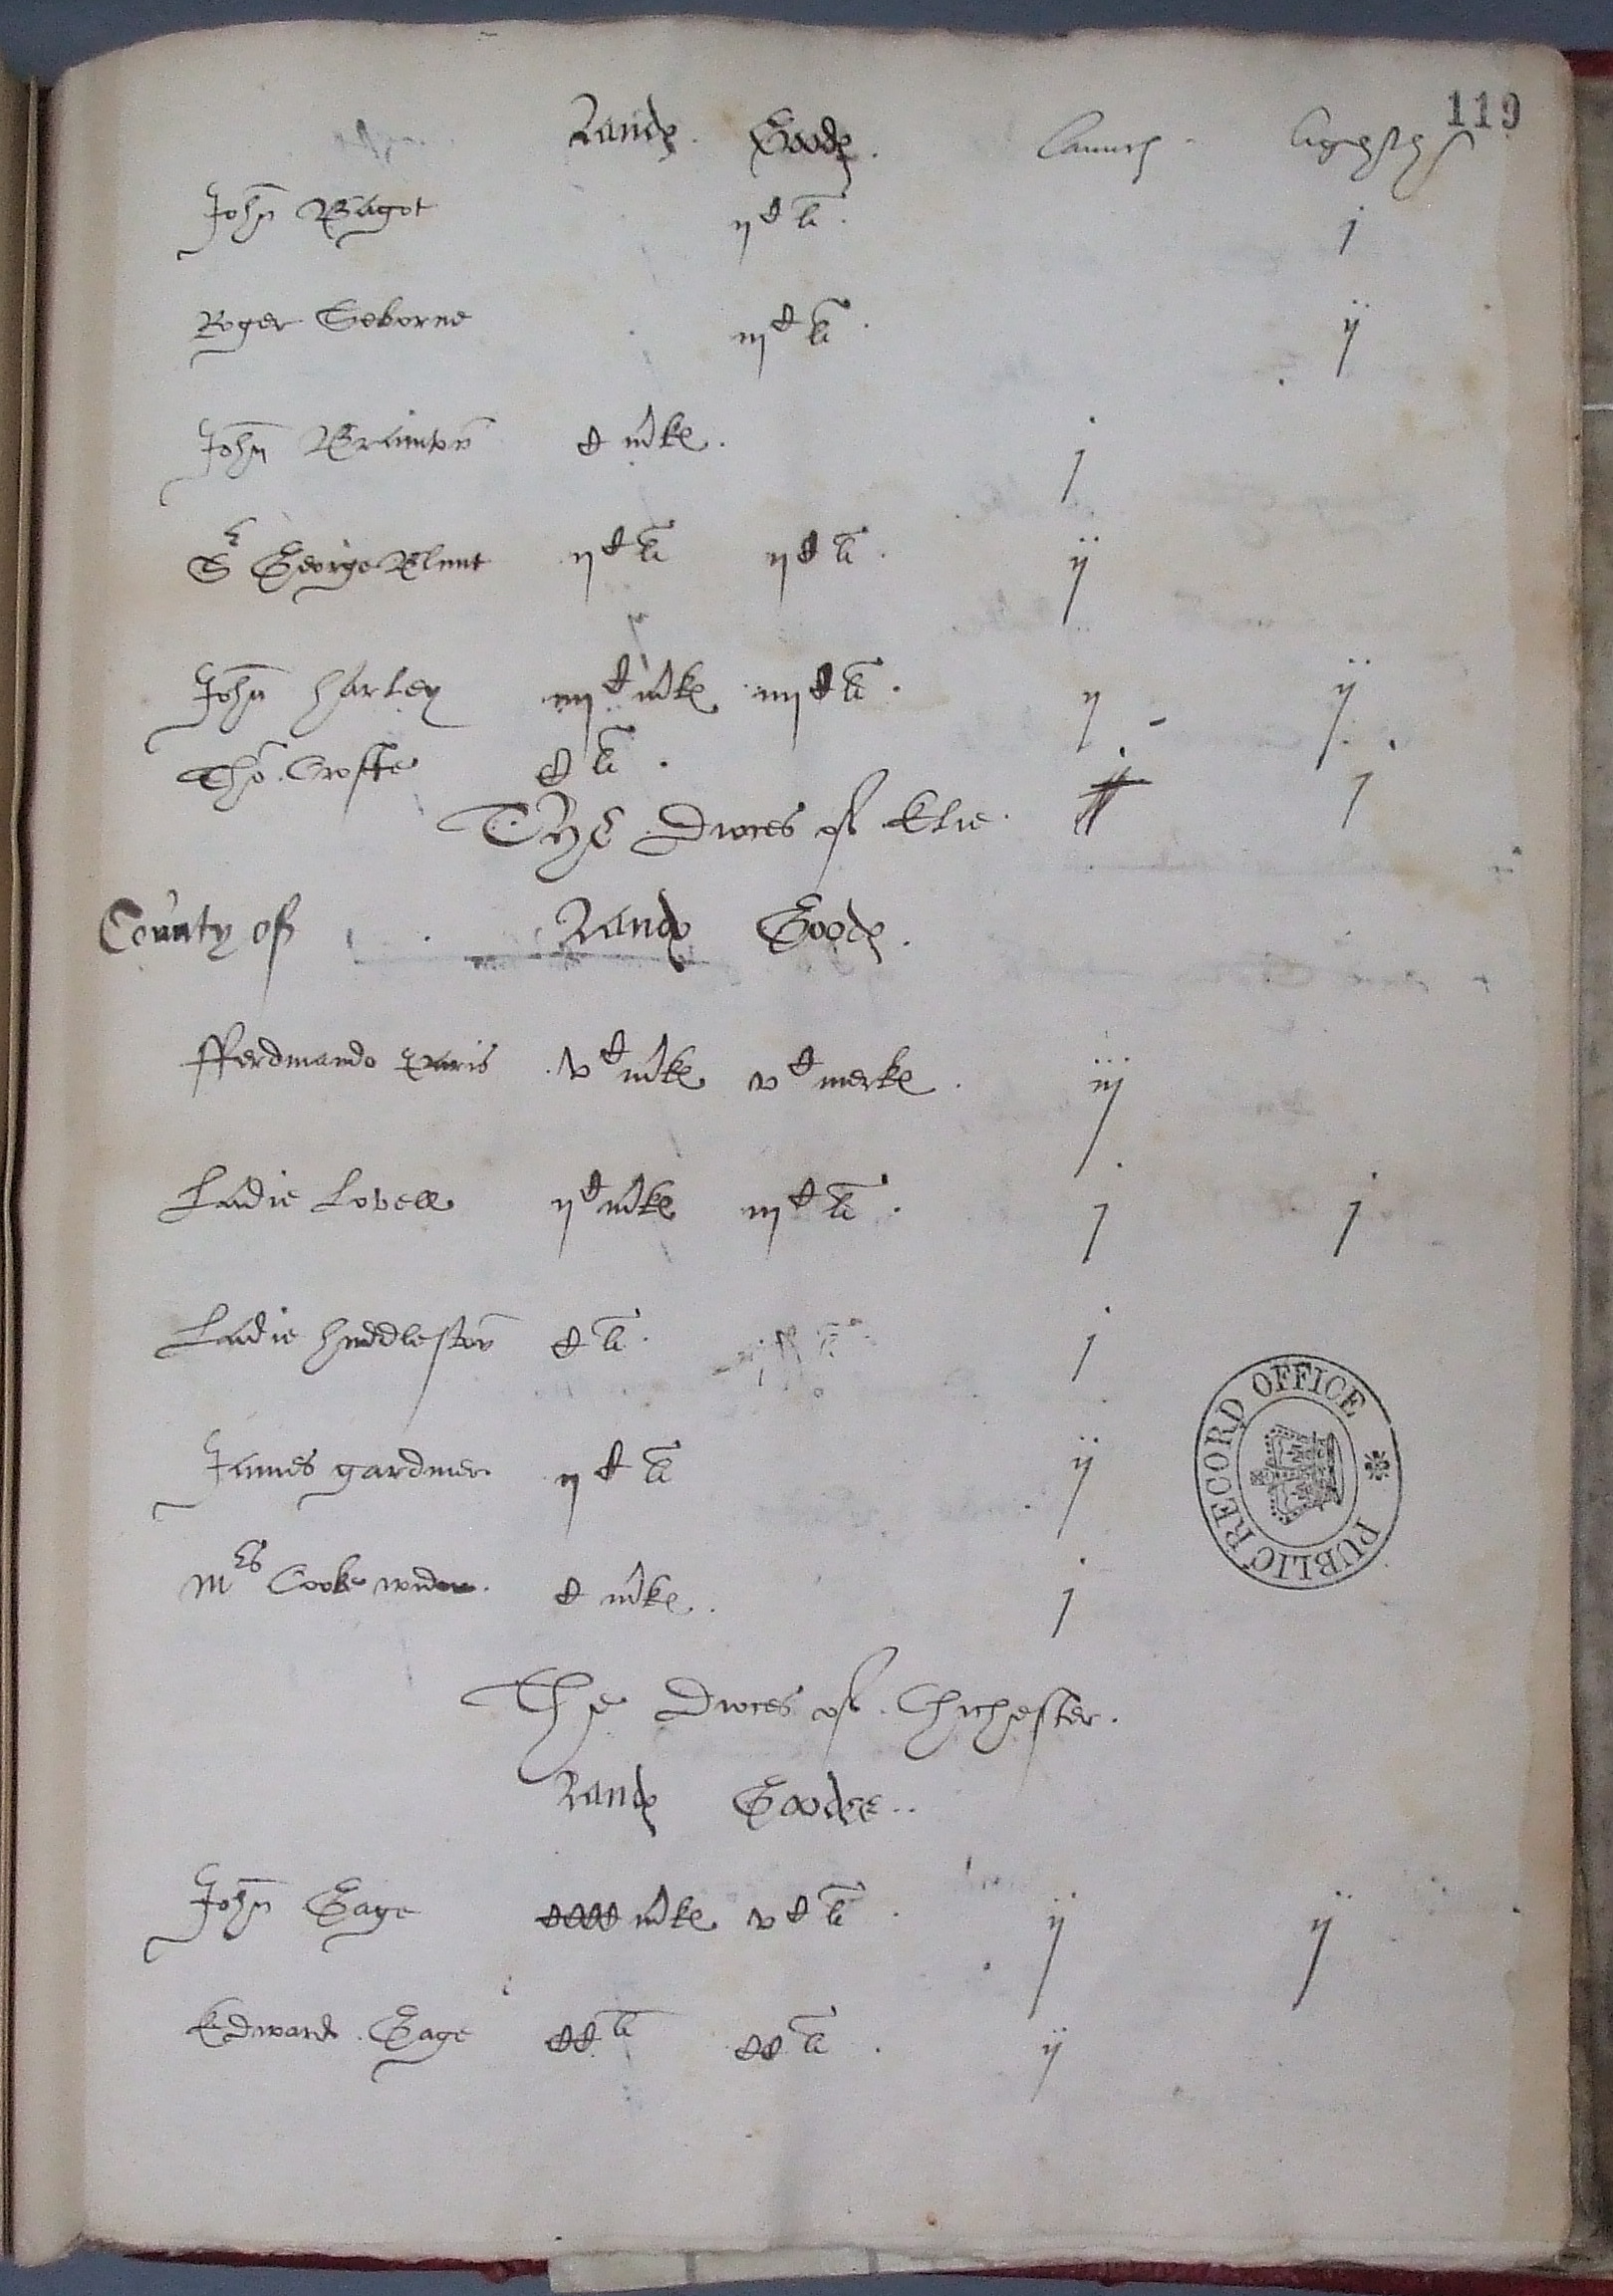 119
Landes. Goodes. Launces Lighthorses
John Bagot ij C li. j
Roger Seborne iij C li. ij
John Brainton C mke. j
Sr George Blunt ij C li ij C li. ij
John Harley iiij C mke iiij C li. ij ij
Tho. Crofte C li. j
The Dioces of Elie.
County of Landes Goodes.
fferdinando Paris v C mke v C merke. iij
Ladie Lovell ij C mke iij C li. j j
Ladie Huddleston C li. j
James gardiner ij C li ij
Mres Cooke widow. C mke. j
The Dioces of Chichester.
Landes Goodes..
John Gage mke v C li. ij ij
Edward Gage CC li CC li. ij
PUBLIC RECORD OFFICE